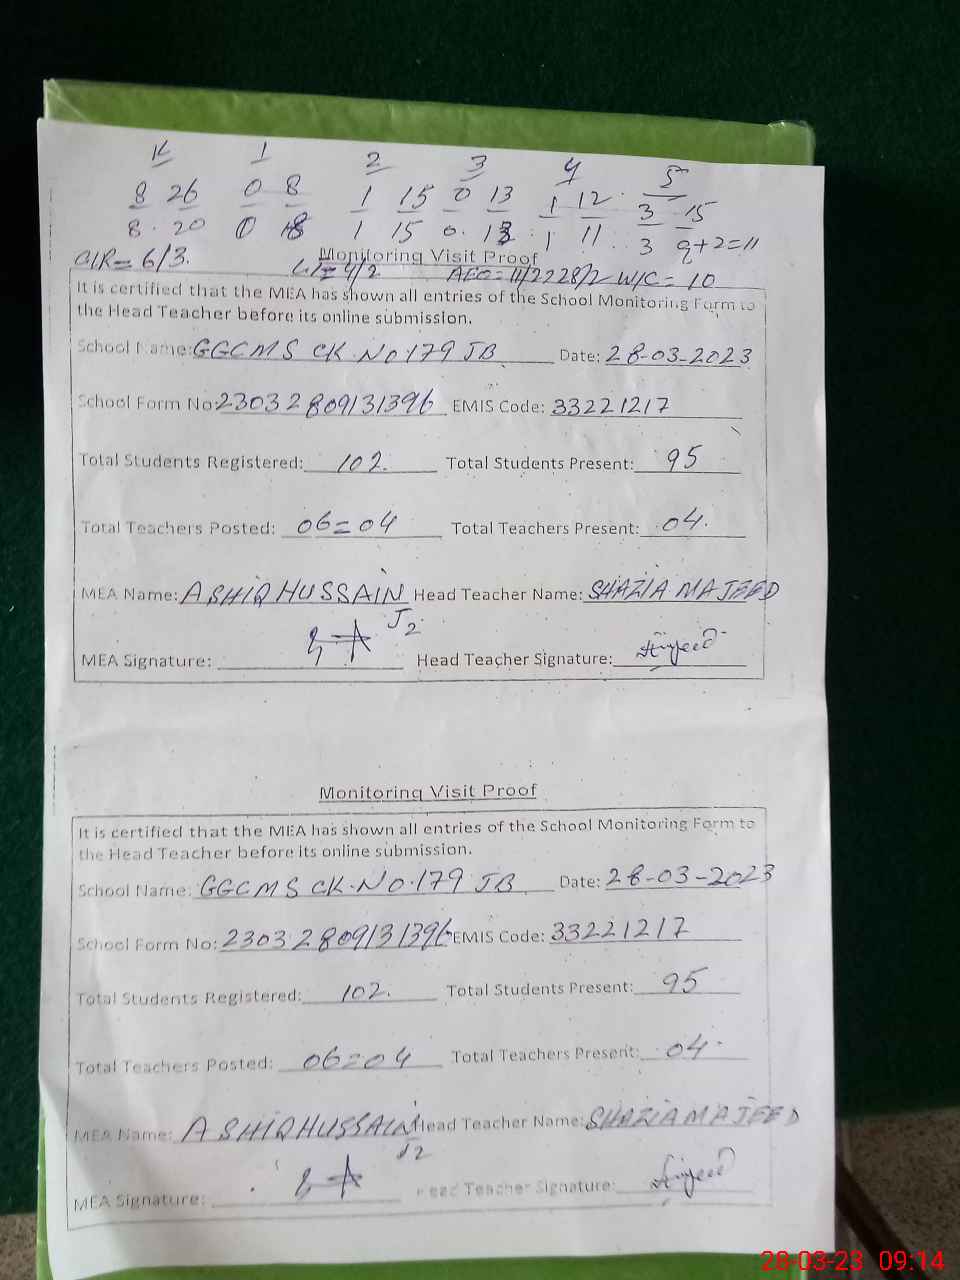 K 1 2 3 4 5
8 26 0 8 1 15 0 13 1 12 3 15
8 20 0 8 1 15 0 13 1 11 3 9+2=11
Monitoring Visit Proof
C/R= 6/3. 4/2 AEO=11/2,28/2 W/C=10
It is certified that the MEA has shown all entries of the School Monitoring Form to
the Head Teacher before its online submission.
School Name: GGCMS CK.No.179 JB Date: 28-03-2023
School Form No: 23032809131396 EMIS Code: 33221217
Total Students Registered: 102. Total Students Present: 95
Total Teachers Posted: 06=04 Total Teachers Present: 04.
MEA Name: ASHIQ HUSSAIN Head Teacher Name: SHAZIA MAJEED
J2
MEA Signature: Head Teacher Signature:
Monitoring Visit Proof
It is certified that the MEA has shown all entries of the School Monitoring Form to
the Head Teacher before its online submission.
School Name: GGCMS CK.No.179 JB Date: 28-03-2023
School Form No: 23032809131396 EMIS Code: 33221217
Total Students Registered: 102. Total Students Present: 95
Total Teachers Posted: 06=04 Total Teachers Present: 04.
MEA Name: ASHIQ HUSSAIN Head Teacher Name: SHAZIA MAJEED
J2
MEA Signature: Head Teacher Signature:
28-03-23 09:14